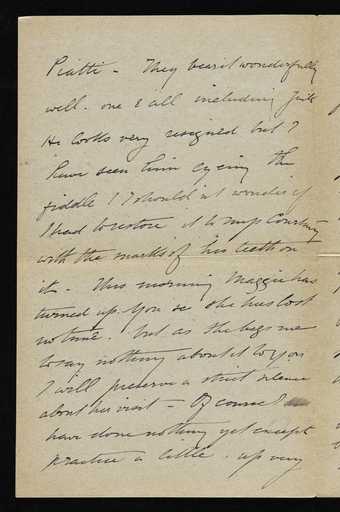 Piatti - They bear it wonderfully
well. one & all including
He looks very resigned but I
have seen him eyeing the
fiddle! I should n't wonder if
I had to restore it to
with the marks of his teeth on
it. This morning Maggie has
turned up. You see she has lost
no time. but as she begs me
to say nothing about it to you
I will preserve a strict silence
about her visit - Of course I
have done nothing yet except
practice a little. up very